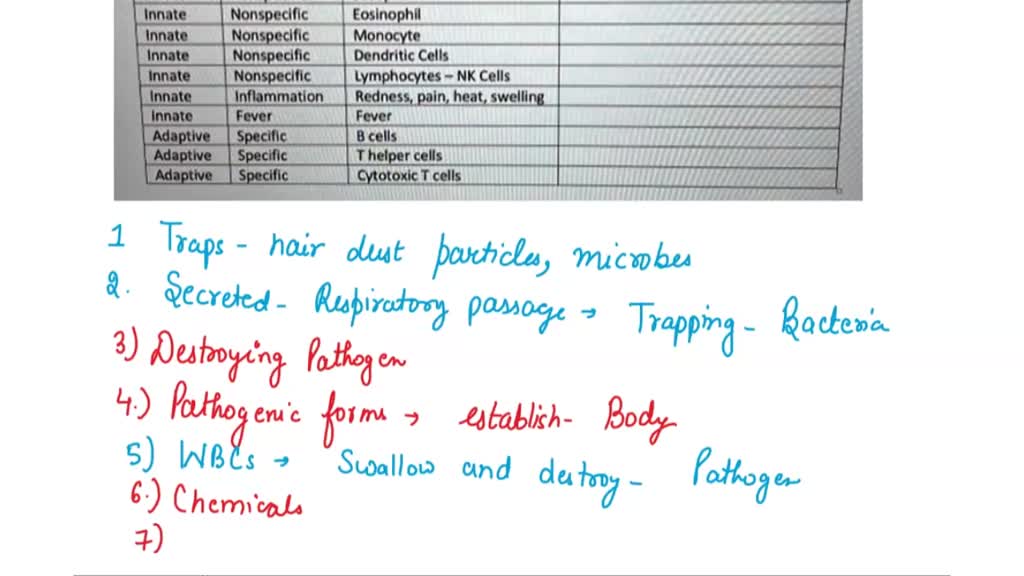 Innate Nonspecific Eosinophil
Innate Nonspecific Monocyte
Innate Nonspecific Dendritic Cells
Innate Nonspecific Lymphocytes – NK Cells
Innate Inflammation Redness, pain, heat, swelling
Innate Fever Fever
Adaptive Specific B cells
Adaptive Specific T helper cells
Adaptive Specific Cytotoxic T cells
1 Traps - hair dust particles, microbes
2. Secreted - Respiratory passage → Trapping - Bacteria
3) Destroying Pathogen
4.) Pathogenic forms → establish - Body
5) WBCs → Swallow and destroy - Pathogen
6.) Chemicals
7)